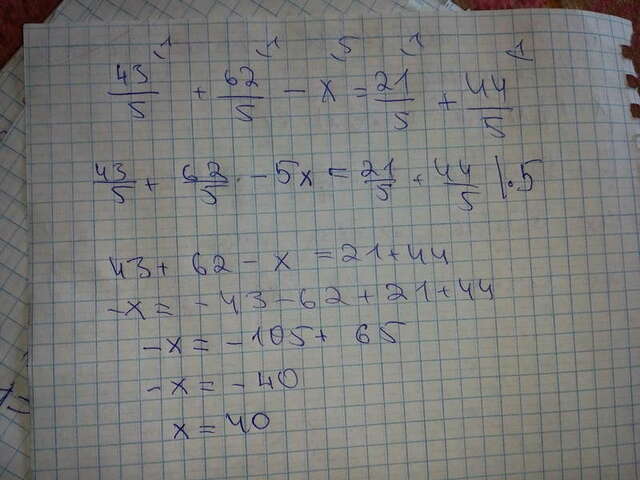 1 1 5 1 1
43/5 + 62/5 - x = 21/5 + 44/5
43/5 + 62/5 - 5x = 21/5 + 44/5 |·5
43 + 62 - x = 21 + 44
-x = -43 - 62 + 21 + 44
-x = -105 + 65
-x = -40
x = 40